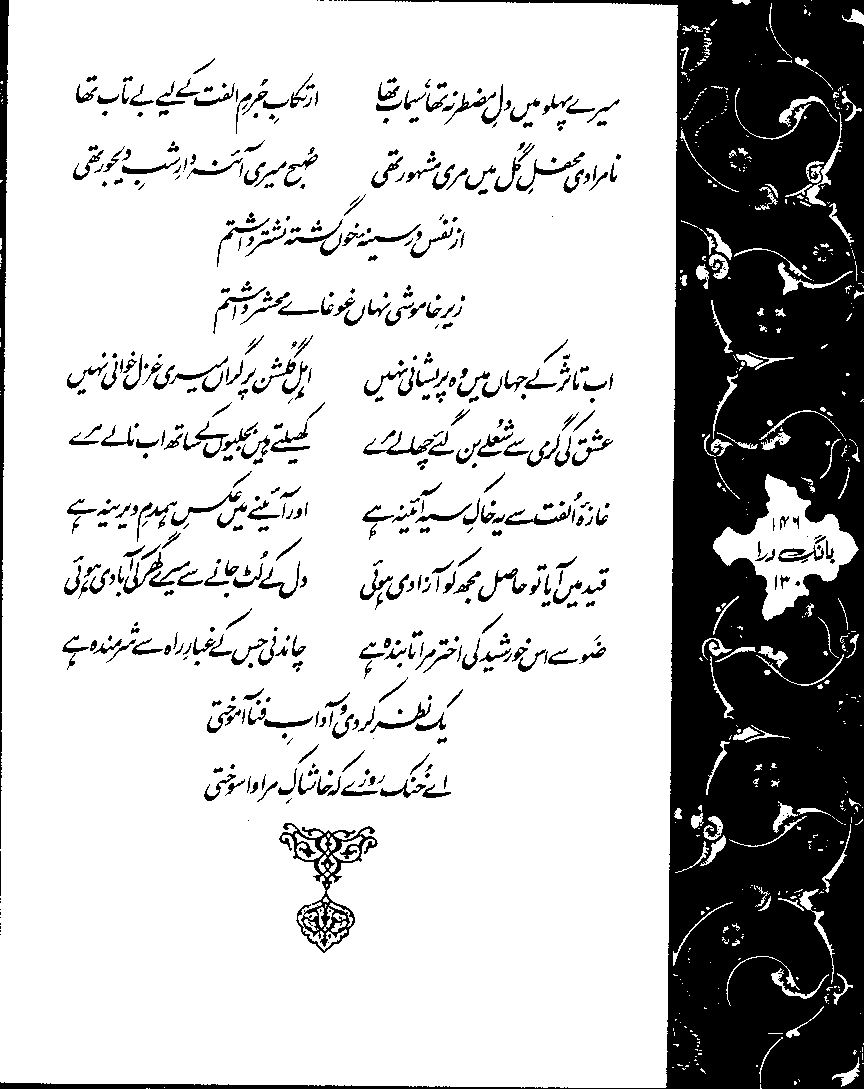 میرے پہلو میں دلِ مضطر نہ تھا، سیماب تھا ارتکابِ جُرمِ الفت کے لیے بے تاب تھا
نامرادی محفلِ گُل میں مری مشہور تھی صُبح میری آئنہ دارِ شبِ دیجور تھی
از نفَس در سینۂ خوں گشتہ نشتر داشتم
زیرِ خاموشی نہاں غوغائے محشر داشتم
اب تاثّر کے جہاں میں وہ پریشانی نہیں اہلِ گُلشن پر گراں میری غزل خوانی نہیں
عشق کی گرمی سے شُعلے بن گئے چھالے مرے کھیلتے ہیں بجلیوں کے ساتھ اب نالے مرے
غازۂ اُلفت سے یہ خاکِ سیہ آئینہ ہے اور آئینے میں عکسِ ہمدمِ دیرینہ ہے
قید میں آیا تو حاصل مجھ کو آزادی ہوئی دل کے لُٹ جانے سے میرے گھر کی آبادی ہوئی
ضَو سے اس خورشید کی اختر مرا تابندہ ہے چاندنی جس کے غبارِ راہ سے شرمندہ ہے
یک نظر کردی و آدابِ فنا آموختی
اے خُنک روزے کہ خاشاکِ مرا واسوختی
۱۴۶
بانگِ درا
۱۳۰